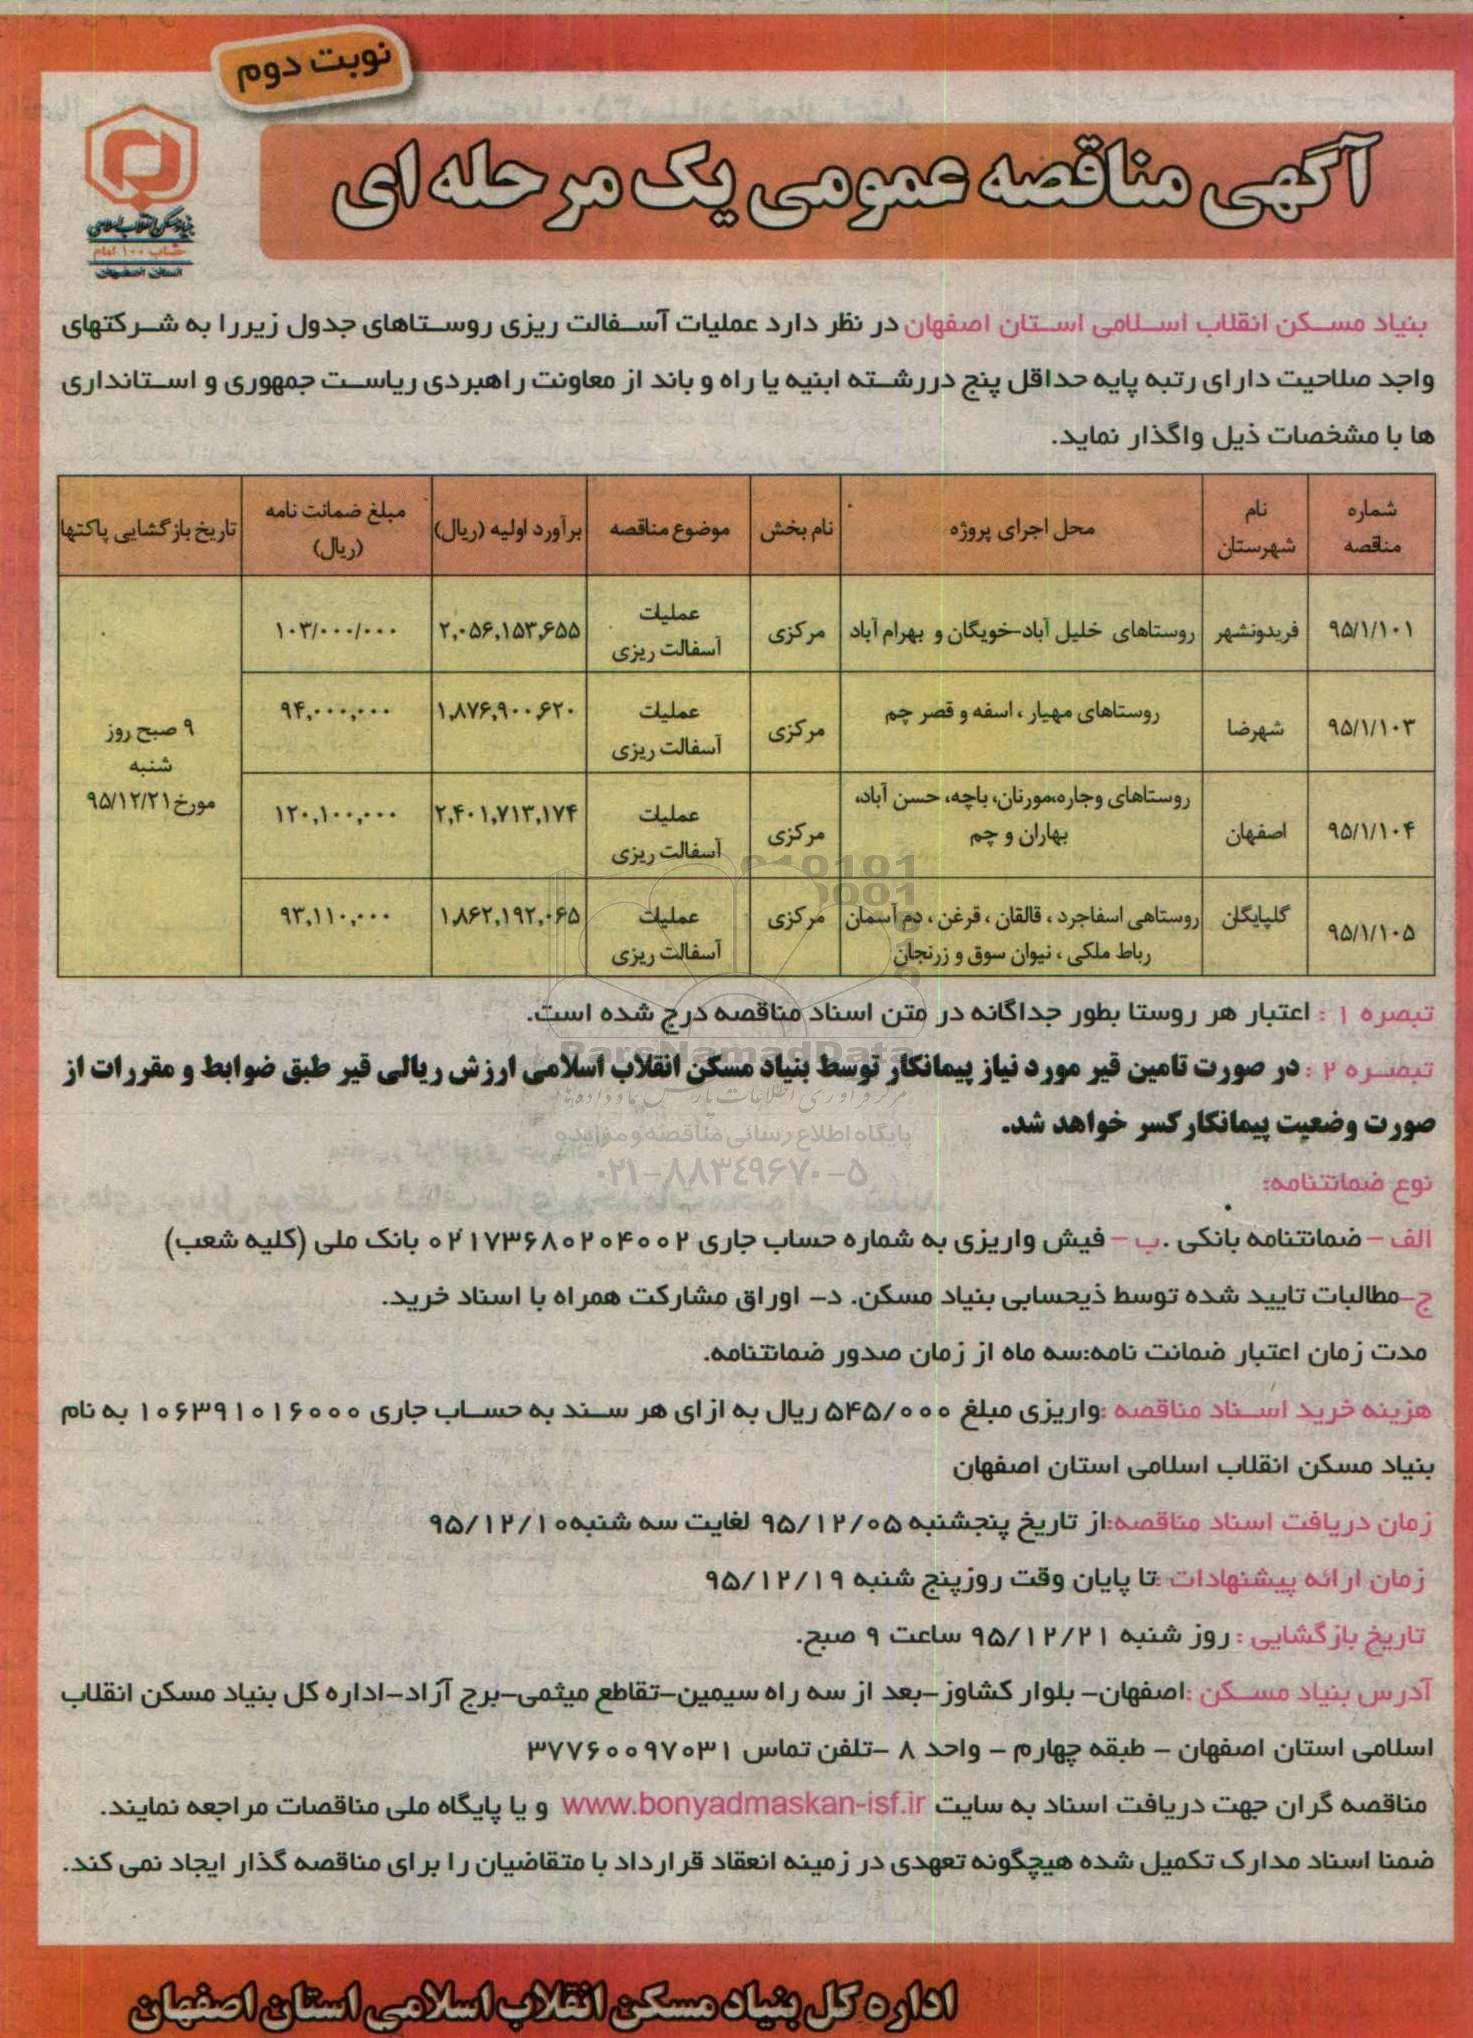 نوبت دوم
آگهی مناقصه عمومی یک مرحله ای
بنیاد مسکن انقلاب اسلامی
حساب ۱۰۰ امام
استان اصفهان
بنیاد مسکن انقلاب اسلامی استان اصفهان در نظر دارد عملیات آسفالت ریزی روستاهای جدول زیررا به شرکتهای
واجد صلاحیت دارای رتبه پایه حداقل پنج دررشته ابنیه یا راه و باند از معاونت راهبردی ریاست جمهوری و استانداری
ها با مشخصات ذیل واگذار نماید.
شماره مناقصه | نام شهرستان | محل اجرای پروژه | نام بخش | موضوع مناقصه | برآورد اولیه (ریال) | مبلغ ضمانت نامه (ریال) | تاریخ بازگشایی پاکتها
۹۵/۱/۱۰۱ | فریدونشهر | روستاهای خلیل آباد-خویگان و بهرام آباد | مرکزی | عملیات آسفالت ریزی | ۲,۰۵۶,۱۵۳,۶۵۵ | ۱۰۳/۰۰۰/۰۰۰ | ۹ صبح روز شنبه مورخ ۹۵/۱۲/۲۱
۹۵/۱/۱۰۳ | شهرضا | روستاهای مهیار ، اسفه و قصر چم | مرکزی | عملیات آسفالت ریزی | ۱,۸۷۶,۹۰۰,۶۲۰ | ۹۴,۰۰۰,۰۰۰
۹۵/۱/۱۰۴ | اصفهان | روستاهای وجاره،مورنان، باچه، حسن آباد، بهاران و چم | مرکزی | عملیات آسفالت ریزی | ۲,۴۰۱,۷۱۳,۱۷۴ | ۱۲۰,۱۰۰,۰۰۰
۹۵/۱/۱۰۵ | گلپایگان | روستاهی اسفاجرد ، قالقان ، قرغن ، دم آسمان رباط ملکی ، نیوان سوق و زرنجان | مرکزی | عملیات آسفالت ریزی | ۱,۸۶۲,۱۹۲,۰۶۵ | ۹۳,۱۱۰,۰۰۰
تبصره ۱ : اعتبار هر روستا بطور جداگانه در متن اسناد مناقصه درج شده است.
تبصره ۲ : در صورت تامین قیر مورد نیاز پیمانکار توسط بنیاد مسکن انقلاب اسلامی ارزش ریالی قیر طبق ضوابط و مقررات از
صورت وضعیت پیمانکار کسر خواهد شد.
ParsNamadData
پایگاه اطلاع رسانی مناقصه و مزایده
۰۲۱-۸۸۳۴۹۶۷۰-۵
نوع ضمانتنامه:
الف – ضمانتنامه بانکی .ب – فیش واریزی به شماره حساب جاری ۰۲۱۷۳۶۸۰۲۰۴۰۰۲ بانک ملی (کلیه شعب)
ج-مطالبات تایید شده توسط ذیحسابی بنیاد مسکن. د- اوراق مشارکت همراه با اسناد خرید.
مدت زمان اعتبار ضمانت نامه:سه ماه از زمان صدور ضمانتنامه.
هزینه خرید اسناد مناقصه :واریزی مبلغ ۵۴۵/۰۰۰ ریال به ازای هر سند به حساب جاری ۱۰۶۳۹۱۰۱۶۰۰۰ به نام
بنیاد مسکن انقلاب اسلامی استان اصفهان
زمان دریافت اسناد مناقصه:از تاریخ پنجشنبه ۹۵/۱۲/۰۵ لغایت سه شنبه۹۵/۱۲/۱۰
زمان ارائه پیشنهادات :تا پایان وقت روزپنج شنبه ۹۵/۱۲/۱۹
تاریخ بازگشایی : روز شنبه ۹۵/۱۲/۲۱ ساعت ۹ صبح.
آدرس بنیاد مسکن :اصفهان- بلوار کشاوز-بعد از سه راه سیمین-تقاطع میثمی-برج آزاد-اداره کل بنیاد مسکن انقلاب
اسلامی استان اصفهان - طبقه چهارم - واحد ۸ -تلفن تماس ۳۷۷۶۰۰۹۷۰۳۱
مناقصه گران جهت دریافت اسناد به سایت www.bonyadmaskan-isf.ir و یا پایگاه ملی مناقصات مراجعه نمایند.
ضمنا اسناد مدارک تکمیل شده هیچگونه تعهدی در زمینه انعقاد قرارداد با متقاضیان را برای مناقصه گذار ایجاد نمی کند.
اداره کل بنیاد مسکن انقلاب اسلامی استان اصفهان